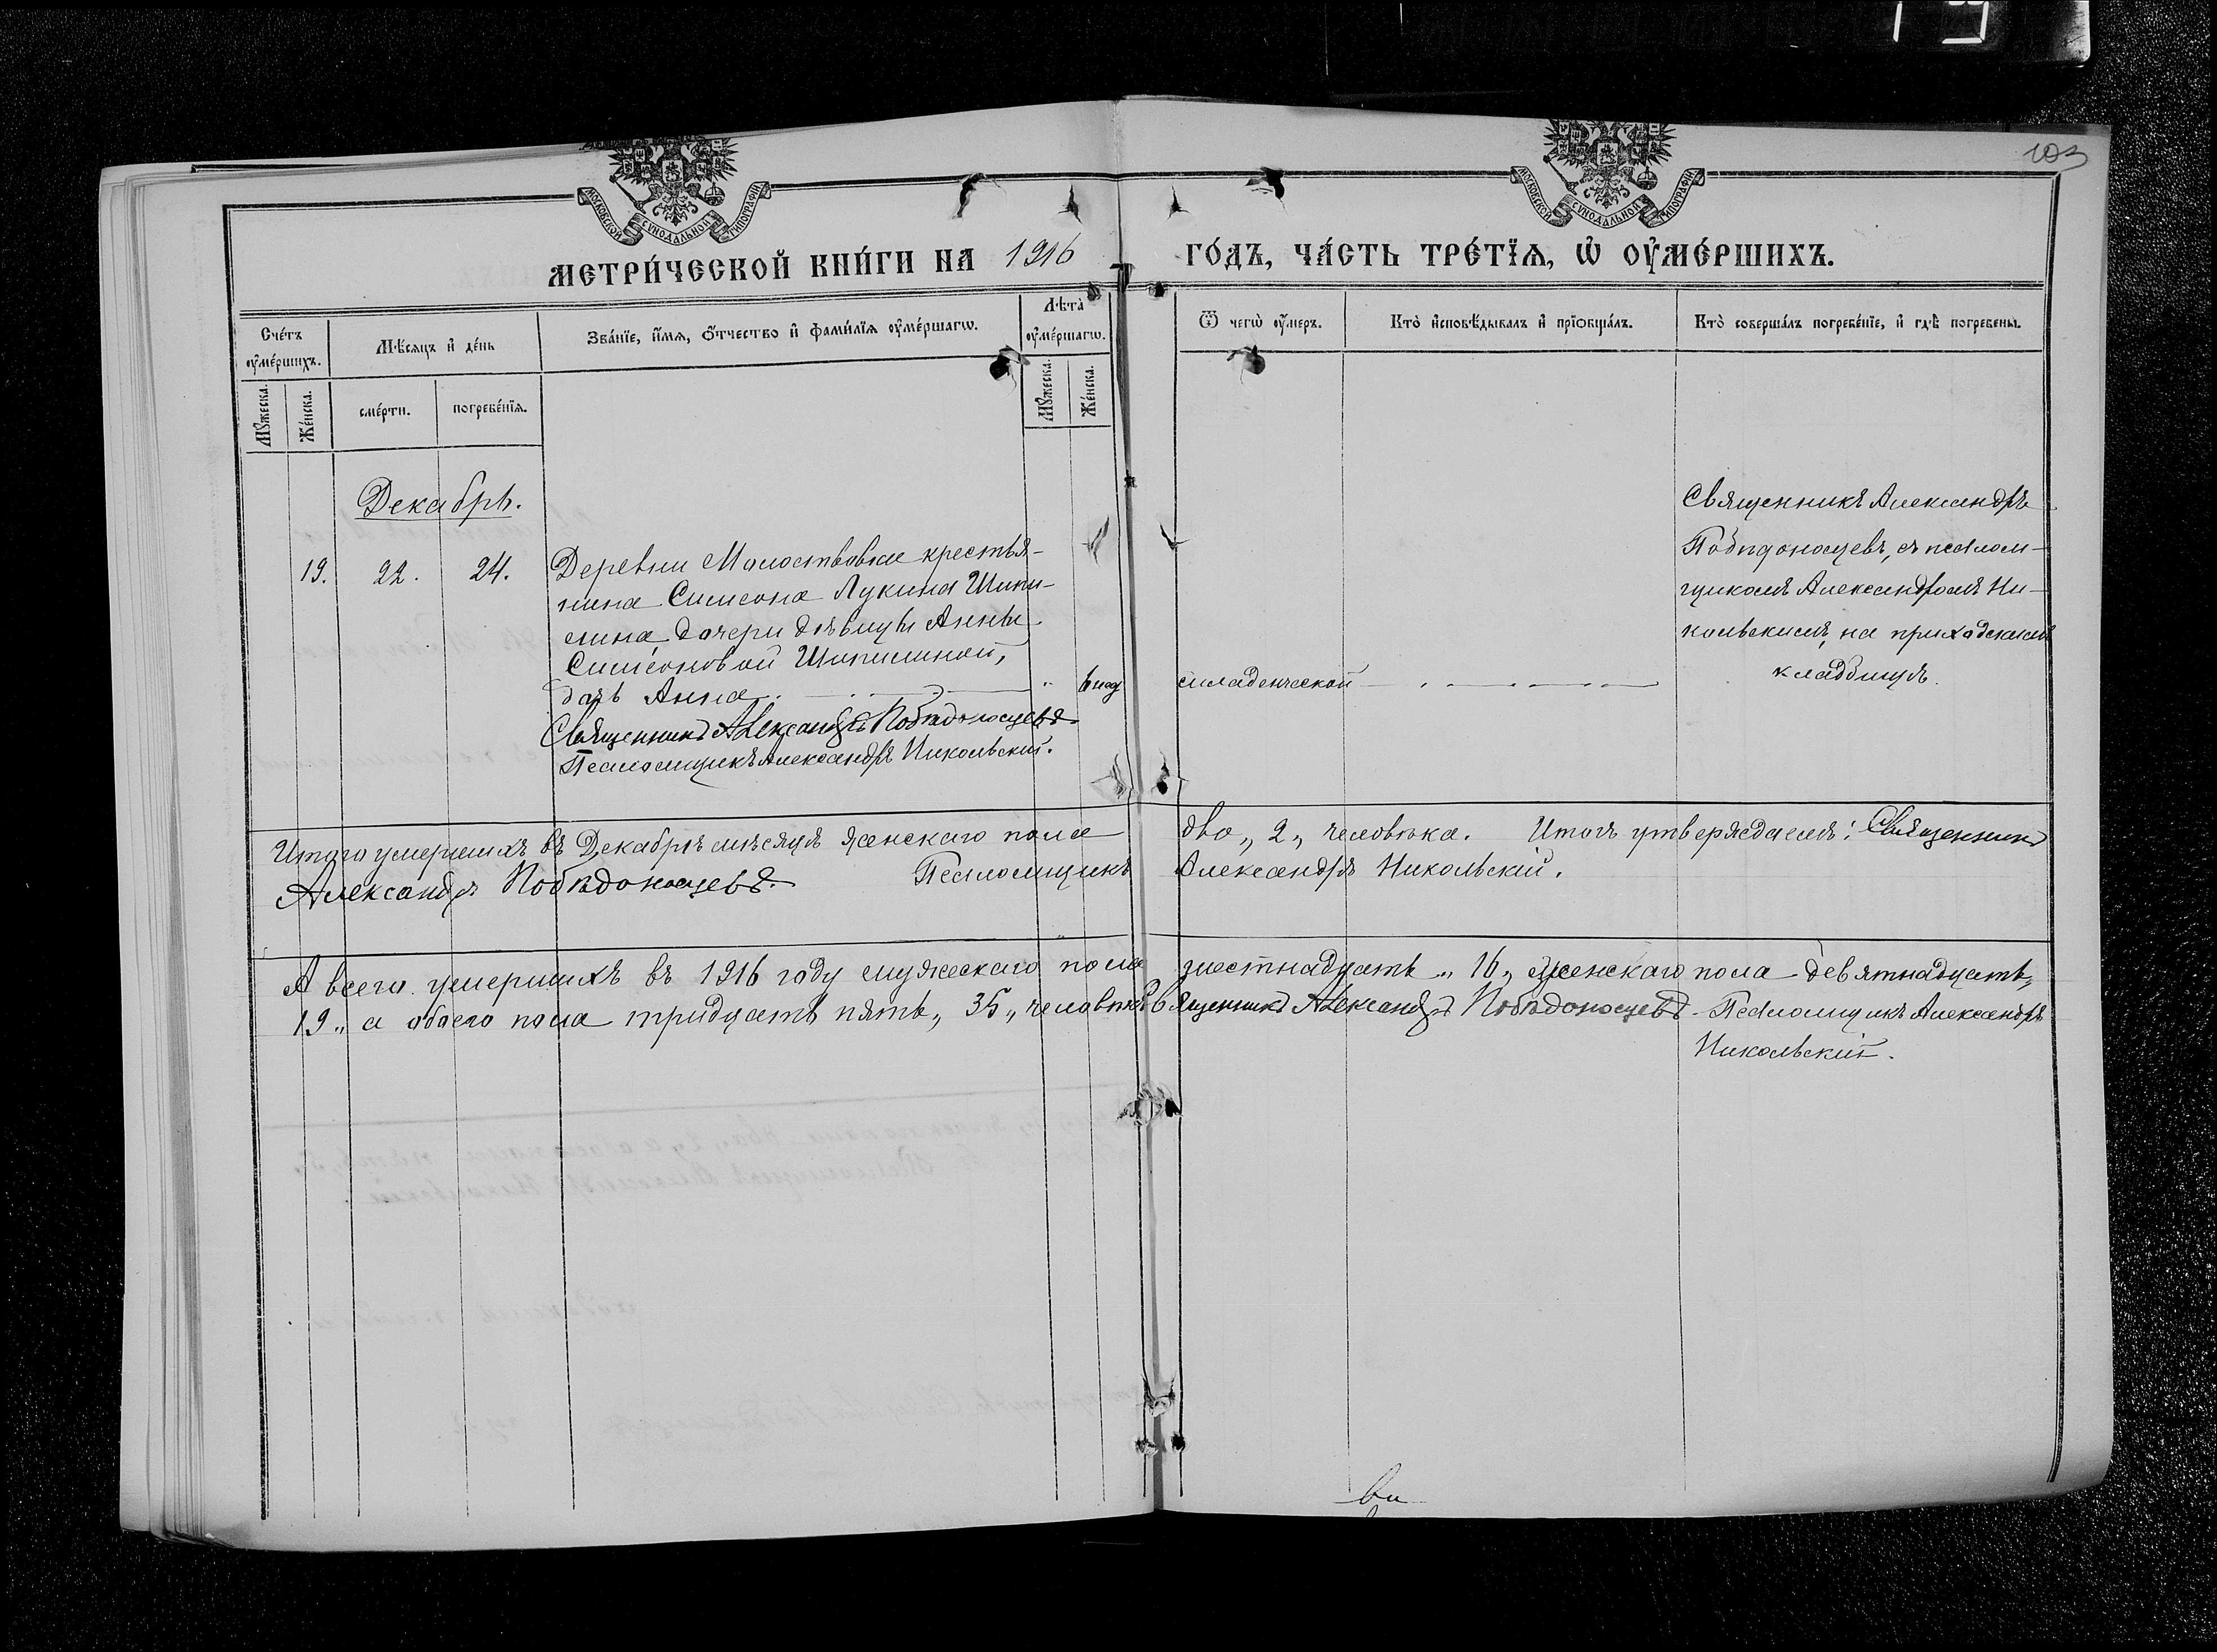 19
103
МОСКОВСКОЙ СѴНОДАЛЬНОЙ ТИПОГРАФІИ
МОСКОВСКОЙ СѴНОДАЛЬНОЙ ТИПОГРАФІИ
МЕТРИ́ЧЕСКОЙ КНИ́ГИ НА 1916 ГО́ДЪ, ЧА́СТЬ ТРЕ́ТЇѦ, Ѡ҆ ОУ҆МЕ́РШИХЪ.
Сче́тъ оу҆ме́ршихъ.
Мꙋ́жеска.
Же́нска.
Мѣ́сяцъ и҆ де́нь
сме́рти.
погребе́нїѧ.
Зва́нїе, и҆́мѧ, ѻ҆́тчество и҆ фами́лїѧ оу҆ме́ршагѡ.
Лѣ́та оу҆ме́ршагѡ.
Мꙋ́жеска.
Же́нска.
Ѿ чегѡ̀ оу҆́меръ.
Кто̀ и҆сповѣ́дывалъ и҆ прїѡбща́лъ.
Кто̀ соверша́лъ погребе́нїе, и҆ гдѣ̀ погребены̀.
Декабрь.
19. 22. 24.
Деревни крестья-
нина Симеона Лукина Шипи-
лина дочери дѣвицы Анны
Симеоновой Шипилиной,
дочь Анна " 6 нед младенческой
Священникъ Александръ Побѣдоносцевъ
Псаломщикъ Александръ Никольскій.
Священникъ Александръ
Побѣдоносцевъ, съ псалом-
щикомъ Александромъ Ни-
кольскимъ, на приходскомъ
кладбищѣ.
Итого умершихъ въ Декабрѣ мѣсяцѣ женскаго пола два „2„ человѣка. Итогъ утверждаемъ: Священникъ
Александръ Побѣдоносцевъ. Псаломщикъ Александръ Никольскій.
А всего умершихъ въ 1916 году мужескаго пола шестнадцать „16„ женскаго пола девятнадцать„
19„ а обоего пола тридцать пять„ 35„ человѣкъ Священникъ Александръ Побѣдоносцевъ Псаломщикъ Александръ
Никольскій.